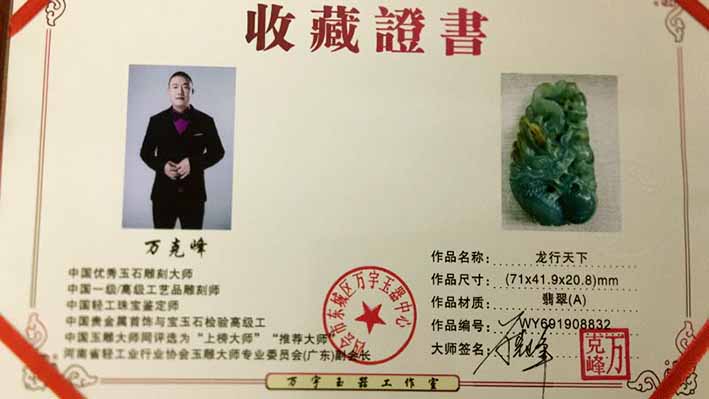 收藏證書
万克峰
中国优秀玉石雕刻大师
中国一级/高级工艺品雕刻师
中国轻工珠宝鉴定师
中国贵金属首饰与宝玉石检验高级工
中国玉雕大师网评选为“上榜大师”“推荐大师”
河南省轻工业行业协会玉雕大师专业委员会(广东)副会长
四会市东城区万宇玉器中心
作品名称: 龙行天下
作品尺寸: (71x41.9x20.8)mm
作品材质: 翡翠(A)
作品编号: WY691908832
大师签名: 万克峰
万克峰
万宇玉器工作室